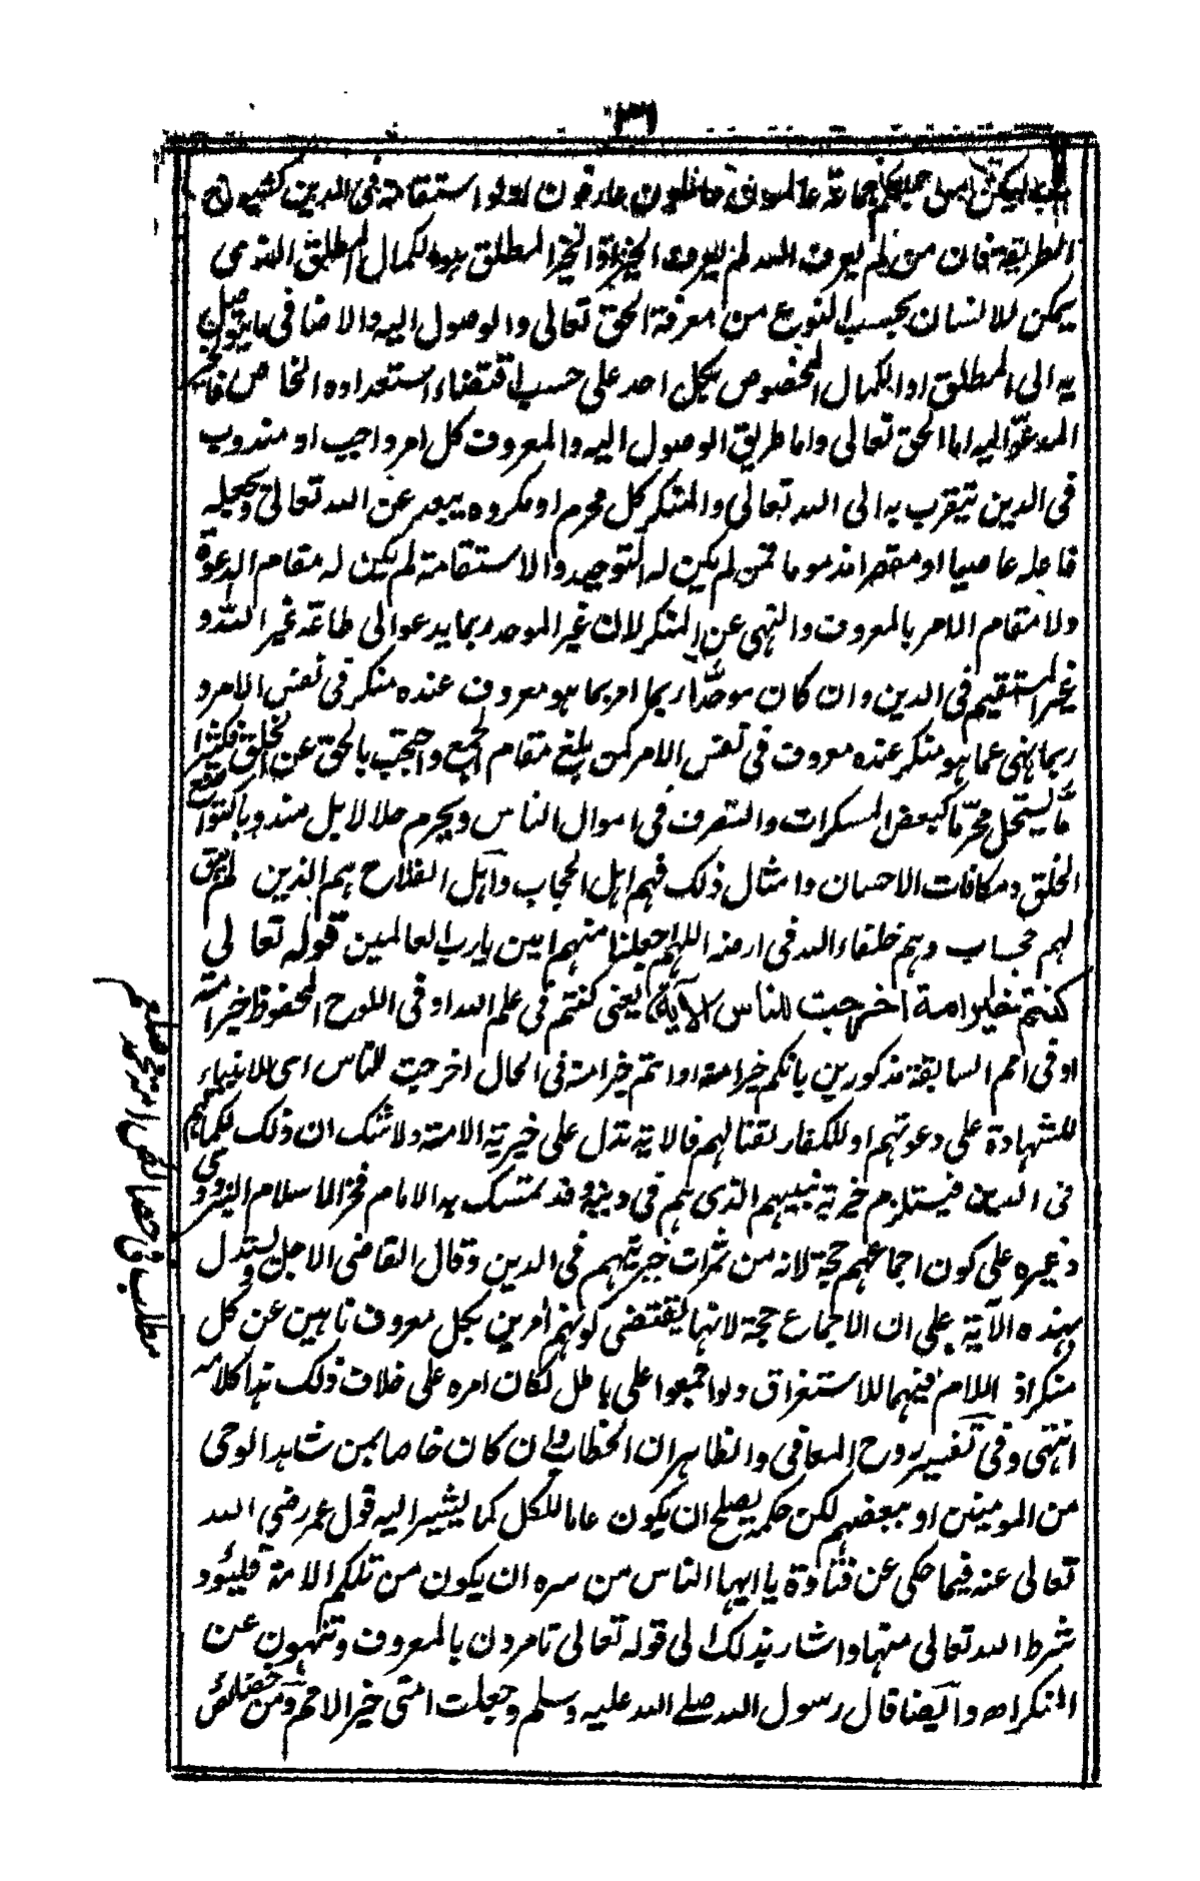 ٣٦
ليكن من جملتكم جماعة عالمون عاملون عارفون اولوا استقامة فى الدين كشيوخ
الطريقة فان من لم يعرف الله لم يعرف الخير اذ الخير المطلق هو الكمال المطلق الذى
يمكن للانسان بحسب النوع من معرفة الحق تعالى والوصول اليه والاضافى ما يتوصل
به الى المطلق او الكمال المخصوص بكل احد على حسب اقتضاء استعداده الخاص فالخير
المدعو اليه اما الحق تعالى واما طريق الوصول اليه والمعروف كل امر واجب او مندوب
فى الدين يتقرب به الى الله تعالى والمنكر كل محرم او مكروه يبعد عن الله تعالى ويجعله
فاعله عاصيا او مقصرا مذموما فمن لم يكن له التوحيد والاستقامة لم يكن له مقام الدعوة
ولا مقام الامر بالمعروف والنهى عن المنكر لان غير الموحد ربما يدعو الى طاعة غير الله و
غير المستقيم فى الدين وان كان موحدًا ربما امر بما هو معروف عنده منكر فى نفس الامر و
ربما نهى عما هو منكر عنده معروف فى نفس الامر كمن بلغ مقام الجمع واحتجب بالحق عن الخلق فكثيرا
مّا يستحل محرّمًا كبعض المسكرات والتصرف فى اموال الناس ويحرم حلالا بل مندوبا كتواضع
الخلق ومكافات الاحسان وامثال ذلك فهم اهل الحجاب واهل الفلاح هم الذين لم يبق
لهم حجاب وهم خلفاء الله فى ارضه اللهم اجعلنا منهم امين يا رب العالمين قوله تعالى
كنتم خير امة اخرجت للناس الآية يعنى كنتم فى علم الله او فى اللوح المحفوظ خير امة
او فى امم السابقة مذكورين بانكم خير امة او انتم خير امة فى الحال اخرجت للناس اى للانبياء
للشهادة على دعوتهم او للكفار لقتالهم فالاية تدل على خيرية الامة ولا شك ان ذلك لكمالهم
فى الدين فيستلزم خيرية نبيهم الذى هم فى دينه وقد تمسك به الامام فخر الاسلام البزدوى
وغيره على كون اجماعهم حجة لانه من ثمرات خيريتهم فى الدين وقال القاضى الاجل يستدل
بهذه الآية على ان الاجماع حجة لانها يقتضى كونهم امرين بكل معروف ناهين عن كل
منكر اذ اللام فيهما للاستغراق ولو اجمعوا على باطل لكان امره على خلاف ذلك هذا كلامه
انتهى وفى تفسير روح المعانى والظاهر ان الخطاب وان كان خاصا بمن شاهد الوحى
من المومنين او ببعضهم لكن حكمه يصلح ان يكون عاما للكل كما يشير اليه قول عمر رضى الله
تعالى عنه فيما حكى عن قتادة يا ايها الناس من سره ان يكون من تلكم الامة فليؤد
شرط الله تعالى منها واشار بذلك الى قوله تعالى تامرون بالمعروف وتنهون عن
المنكر اه وايضا قال رسول الله صلى الله عليه وسلم وجعلت امتى خير الامم ومن خصائص
مطلب فى